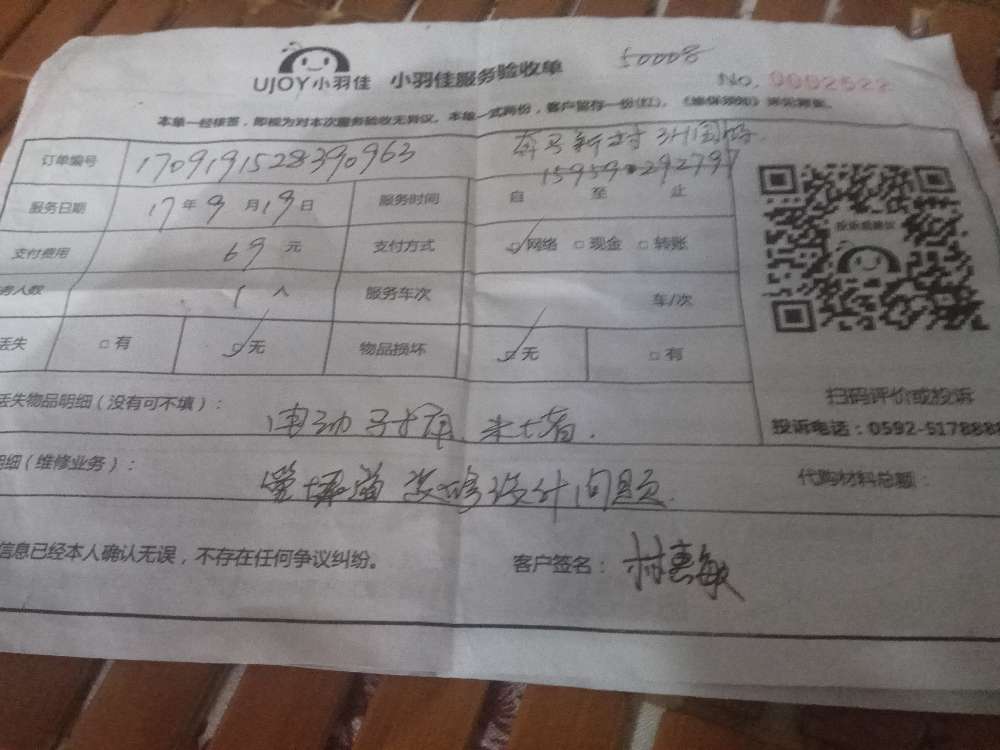 UJOY小羽佳 小羽佳服务验收单 50008
No. 0002522
本单一经接签，即视为对本次服务验收无异议。本单一式两份，客户留存一份(红)。《维保须知》详见背面。
订单编号 170919152839 0963
159590292797
服务日期 17年9月19日 服务时间 自 至 止
支付费用 69元 支付方式 网络 现金 转账
务人数 1人 服务车次 车/次
丢失 有 无 物品损坏 无 有
丢失物品明细（没有可不填）：
明细（维修业务）： 装修设计问题 代购材料总额：
信息已经本人确认无误，不存在任何争议纠纷。 客户签名： 林惠敏
投诉或建议
扫码评价或投诉
投诉电话：0592-5178888